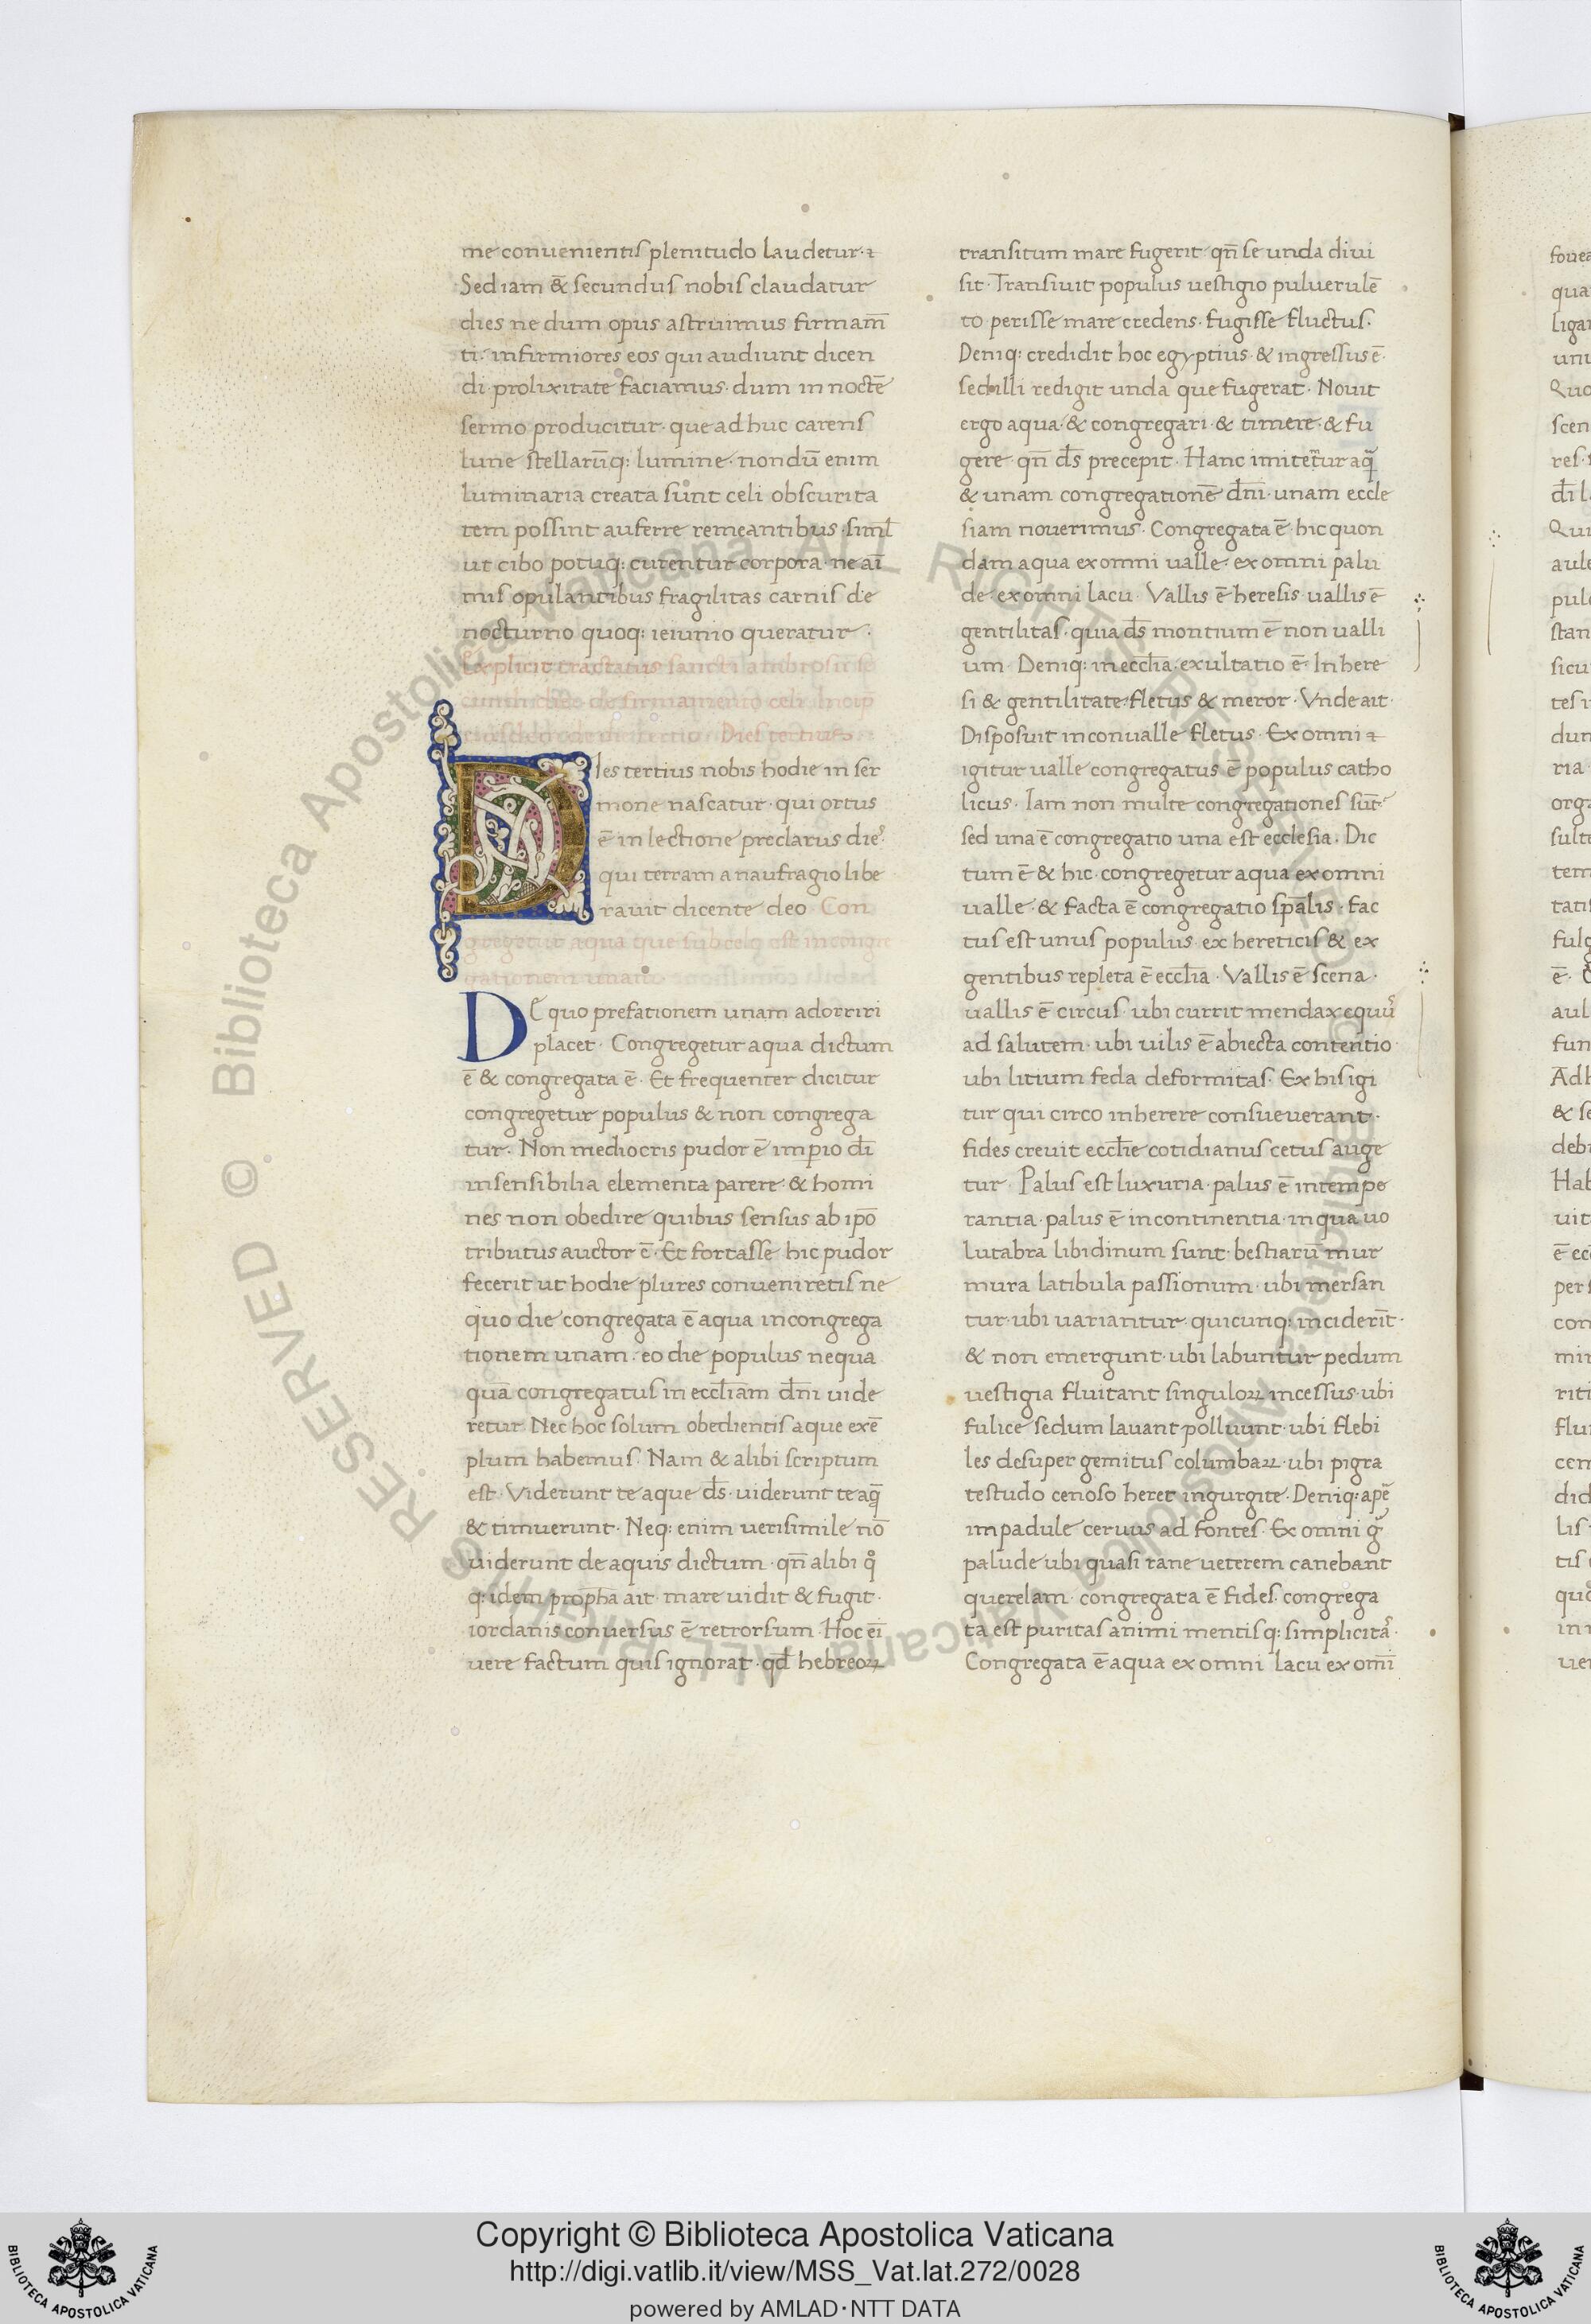 me conuenientis plenitudo laudetur·
Sed iam & secundus nobis claudatur
dies ne dum opus astruimus firmam̄
ti· infirmiores eos qui audiunt dicen
di prolixitate faciamus· dum in noctē
sermo producitur· que ad huc carens
lune stellarūq: lumine· nondū enim
luminaria creata sunt celi obscurita
tem possint auferre remeantibus· siml̄
ut cibo potuq: curentur corpora· ne aī
mis opulantibus fragilitas carnis de
nocturno quoq: ieiunio queratur·
Explicit tractatus sancti ambrosii se
de firmamento celi Incip̄
Dies tertius
Dies tertius nobis hodie in ser
mone nascatur· qui ortus
ē in lectione preclarus die᷒·
qui terram a naufragio libe
rauit dicente deo Con
gregetur aqua que sub celo est in congre
gationem unam
DE quo prefationem unam adorriri
placet· Congregetur aqua dictum
ē & congregata ē· Et frequenter dicitur
congregetur populus & non congrega
tur· Non mediocris pudor ē imperio dī
insensibilia elementa parere· & homi
nes non obedire quibus sensus ab ipō
tributus auctor ē· Et fortasse hic pudor
fecerit ut hodie plures conueniretis ne
quo die congregata ē aqua in congrega
tionem unam· eo die populus nequa
quā congregatus in eccl̄iam dn̄i uide
retur· Nec hoc solum obedientis aque exē
plum habemus· Nam & alibi scriptum
est· Viderunt te aque ds̄· uiderunt te aq̄
& timuerunt· Neq: enim uerisimile nō
uiderunt de aquis dictum· qn̄ alibi qͦ
q: idem proph̄a ait· mare uidit & fugit·
iordanis conuersus ē retrorsum· Hoc eī
uere factum quis ignorat· qd̄ hebreoꝝ
transitum mare fugerit· qn̄ se unda diui
sit· Transiuit populus uestigio puluerulē
to perisse mare credens· fugisse fluctus·
Deniq: credidit hoc egyptius· & ingressus ē·
sed illi redigit unda que fugerat· Nouit
ergo aqua· & congregari· & timere· & fu
gere· qn̄ ds̄ precepit· Hanc imitemur aq̄
& unam congregationē dn̄i· unam eccle
siam nouerimus· Congregata ē hic quon
dam aqua ex omni ualle· ex omni palu
de· ex omni lacu· Vallis ē heresis· uallis ē
gentilitas· quia ds̄ montium ē non ualli
um· Deniq: in eccl̄ia· exultatio ē· In here
si & gentilitate· fletus & meror· Vnde ait·
Disposuit in conualle fletus· Ex omni
igitur ualle congregatus ē populus catho
licus· Iam non multe congregationes sūt·
sed una ē congregatio una est ecclesia· Dic
tum ē & hic· congregetur aqua ex omni
ualle· & facta ē congregatio sp̄alis· fac
tus est unus populus ex hereticis & ex
gentibus repleta ē eccl̄ia· Vallis ē scena·
uallis ē circus· ubi currit mendax equu᷒
ad salutem· ubi uilis ē abiecta contentio
ubi litium feda deformitas· Ex his igi
tur qui circo inherere consueuerant·
fides creuit eccl̄ie cotidianus cetus auge
tur· Palus est luxuria· palus ē intempe
rantia· palus ē incontinentia· in qua uo
lutabra libidinum sunt· bestiarū mur
mura latibula passionum· ubi mersan
tur· ubi uariantur· quicunq: inciderīt·
& non emergunt· ubi labuntur pedum
uestigia fluitant singuloꝝ incessus· ubi
fulice se dum lauant polluunt· ubi flebi
les desuper gemitus columbaꝝ· ubi pigra
testudo cenoso heret ingurgite· Deniq: apē
im padule ceruus ad fontes· Ex omni g̊
palude ubi quasi rane ueterem canebant
querelam· congregata ē fides· congrega
ta est puritas animi mentisq: simplicita᷒·
Congregata ē aqua ex omni lacu ex omī
Copyright © Biblioteca Apostolica Vaticana
http://digi.vatlib.it/view/MSS_Vat.lat.272/0028
powered by AMLAD·NTT DATA
BIBLIOTECA APOSTOLICA VATICANA
BIBLIOTECA APOSTOLICA VATICANA
© Biblioteca Apostolica Vaticana ALL RIGHTS RESERVED